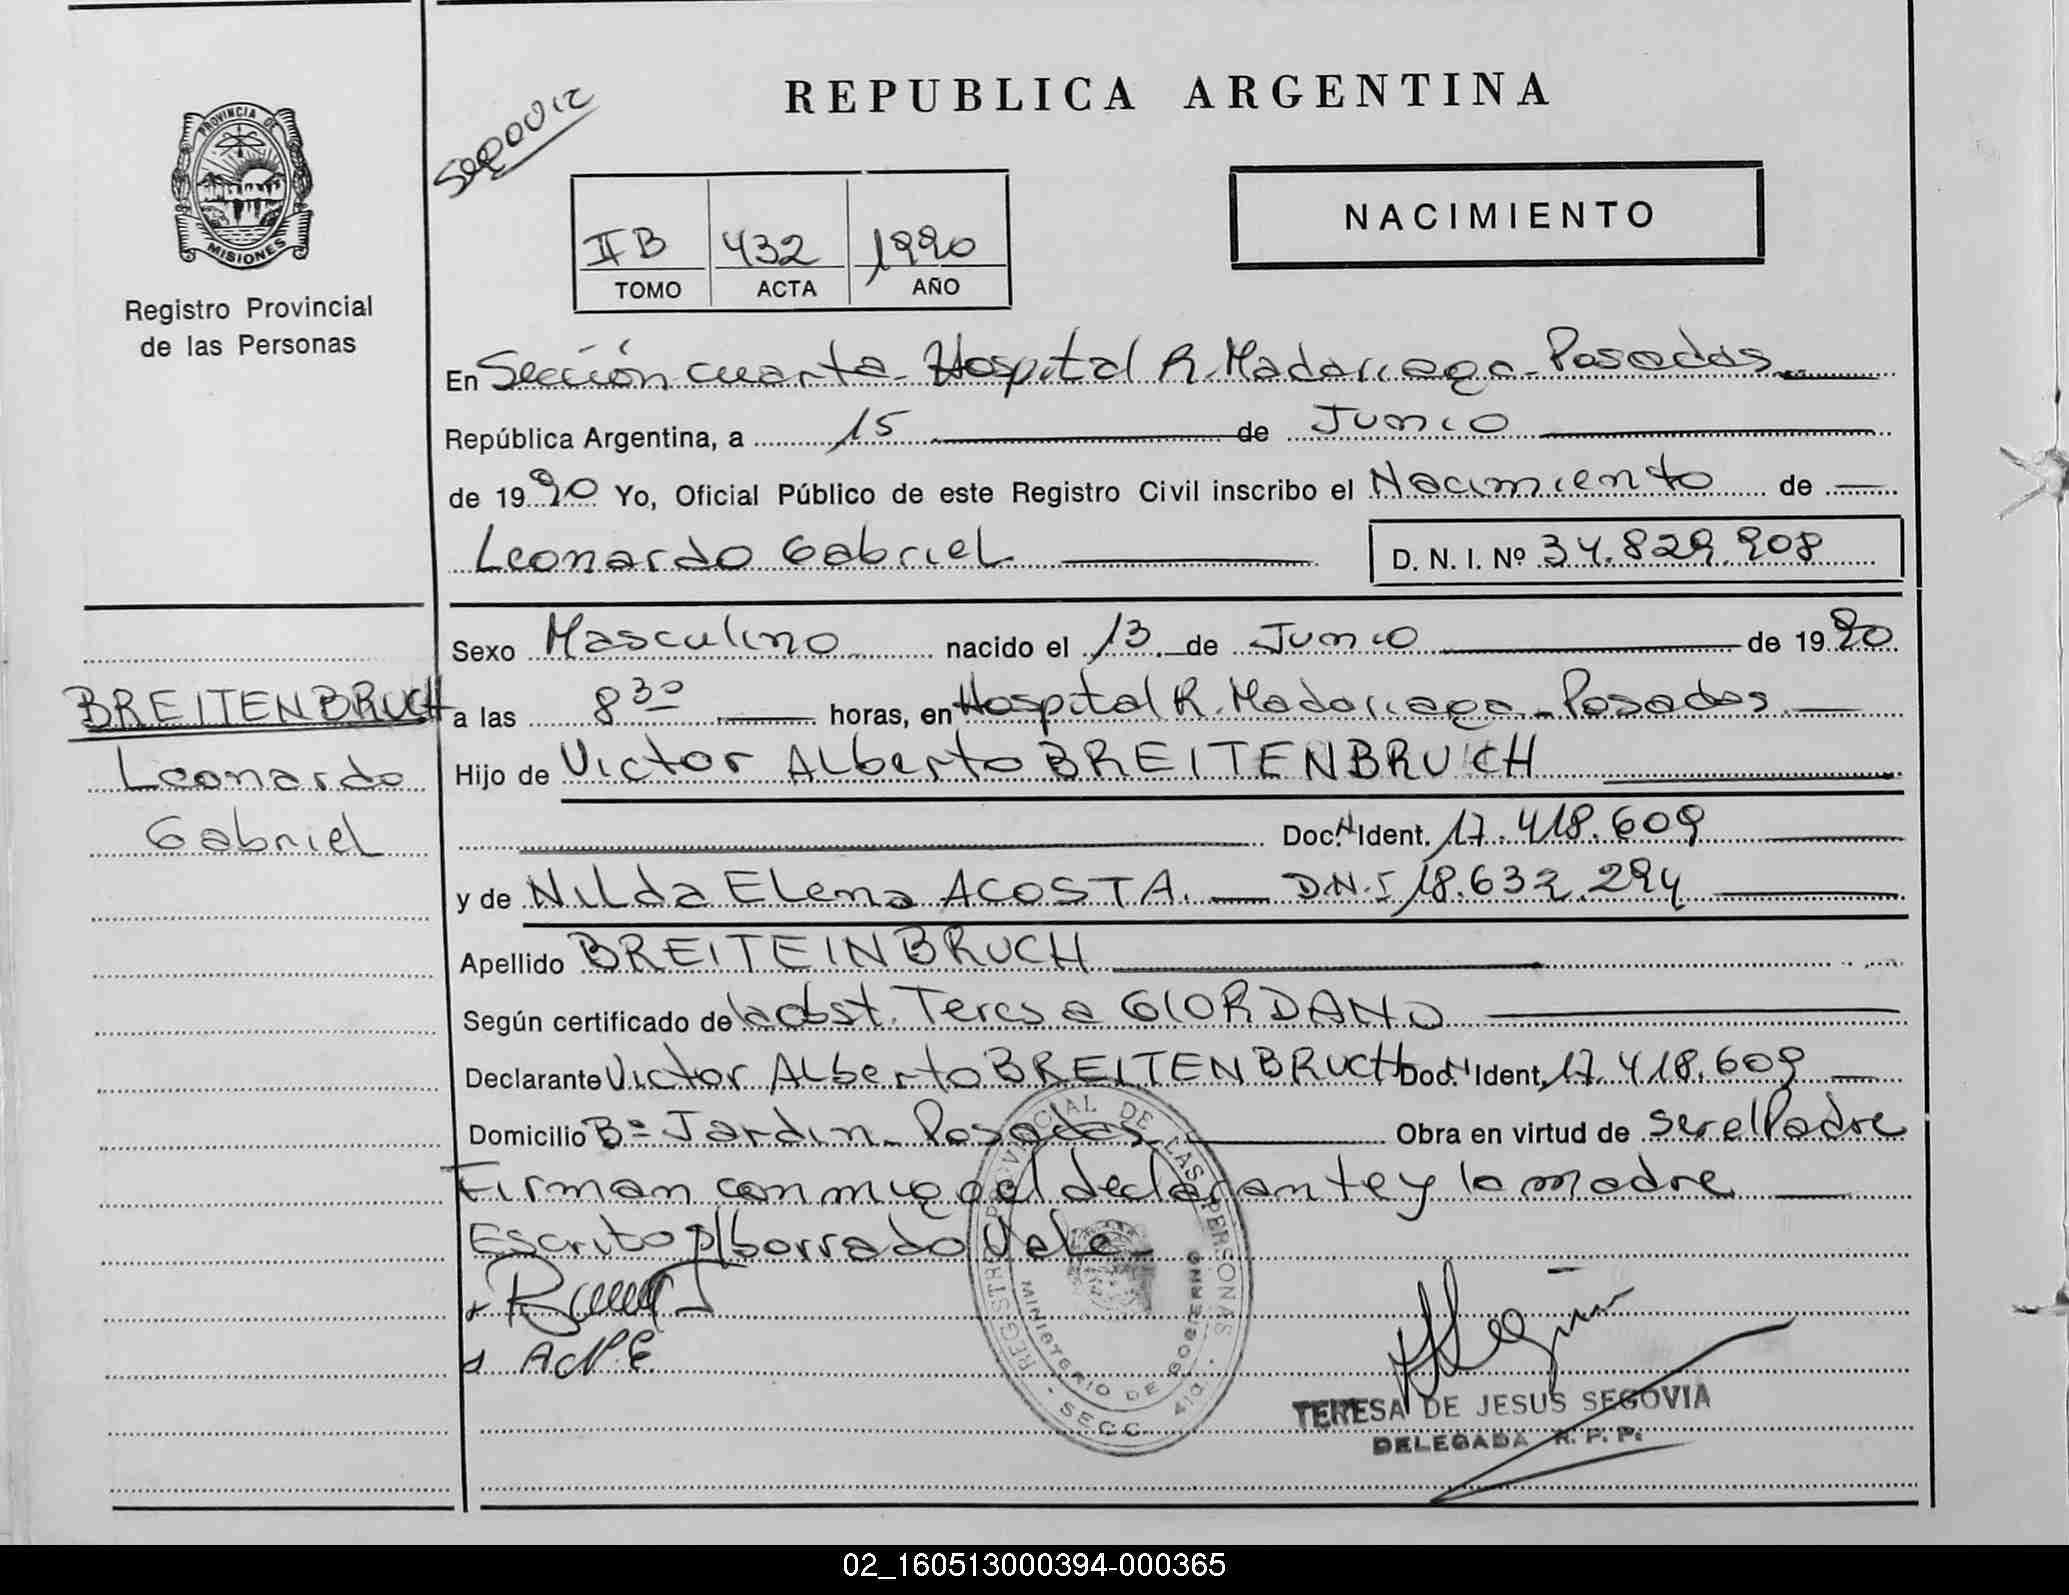 REPUBLICA ARGENTINA
PROVINCIA DE
MISIONES
Registro Provincial
de las Personas
Segovia
NACIMIENTO
II B 432 1990
TOMO ACTA AÑO
En Sección cuarta - Hospital R. Madariaga - Posadas
República Argentina, a 15 de Junio
de 1990 Yo, Oficial Público de este Registro Civil inscribo el Nacimiento de
Leonardo Gabriel D. N. I. Nº 34.829.908
Sexo Masculino nacido el 13 de Junio de 1990
BREITENBRUCH
Leonardo
Gabriel
a las 8 30 horas, en Hospital R. Madariaga - Posadas
Hijo de Victor Alberto BREITENBRUCH
Doc. Ident. 17.418.609
y de Nilda Elena ACOSTA. D.N.I 18.632.294
Apellido BREITEINBRUCH
Según certificado de la obst. Teresa GIORDANO
Declarante Victor Alberto BREITENBRUCH Doc. Ident. 17.418.609
Domicilio Bº Jardin - Posadas Obra en virtud de ser el Padre
Firman conmigo el declarante y la madre
Escrito s/borrado Vale
A N. E.
REGISTRO PROVINCIAL DE LAS PERSONAS
MINISTERIO DE GOBIERNO
SECC. 4ta.
TERESA DE JESUS SEGOVIA
DELEGADA R. P. P.
02_160513000394-000365